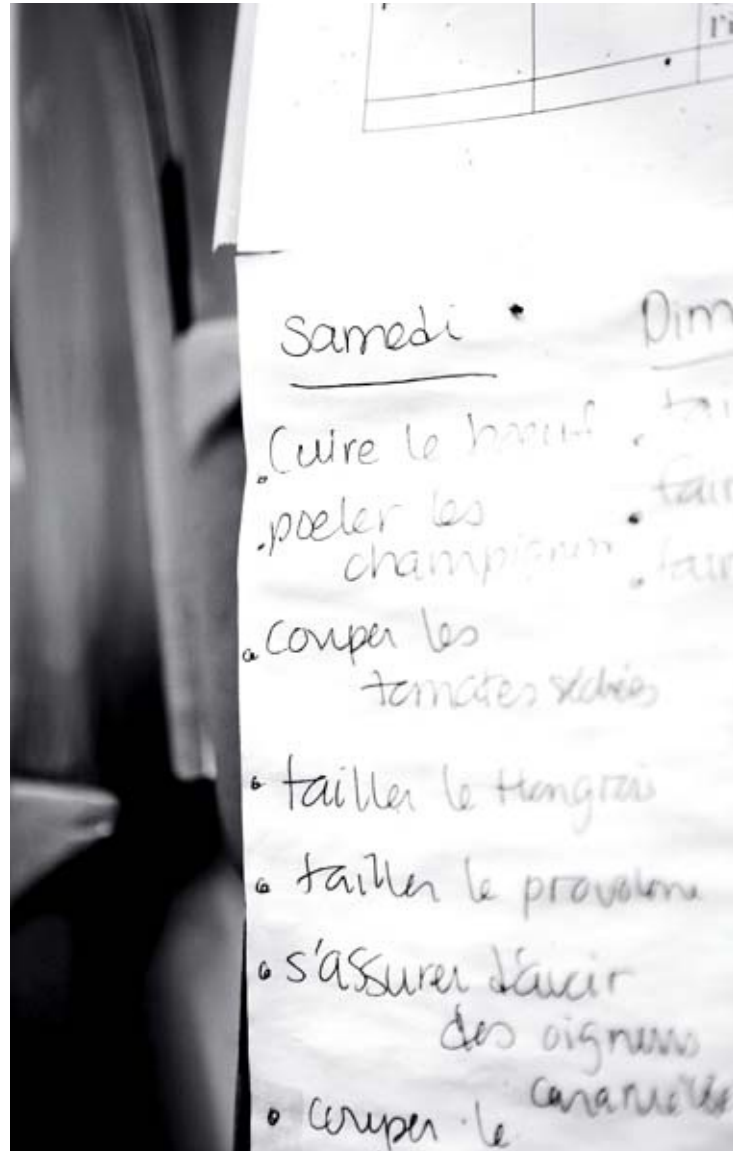 l'i
Samedi • Dim
• Cuire le boeuf • tai
• poeler les • fair
champignons • fair
• couper les
tomates séchées
• tailler le Hongrois
• tailler le provolone
• s'assurer d'avoir
des oignons
caramélisés
• couper le